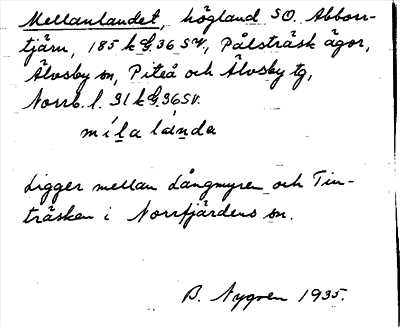 Mellanlandet, högland SO. Abborr-
tjärn, 185 k G.36 SV, Pålsträsk ägor,
Älvsby sn, Piteå och Älvsby tg,
Norrb. l. 31 k G.36 SV.
míla lánda
Ligger mellan Långmyren och Tin-
träsken i Norrfjärdens sn.
B. Nygren 1935.